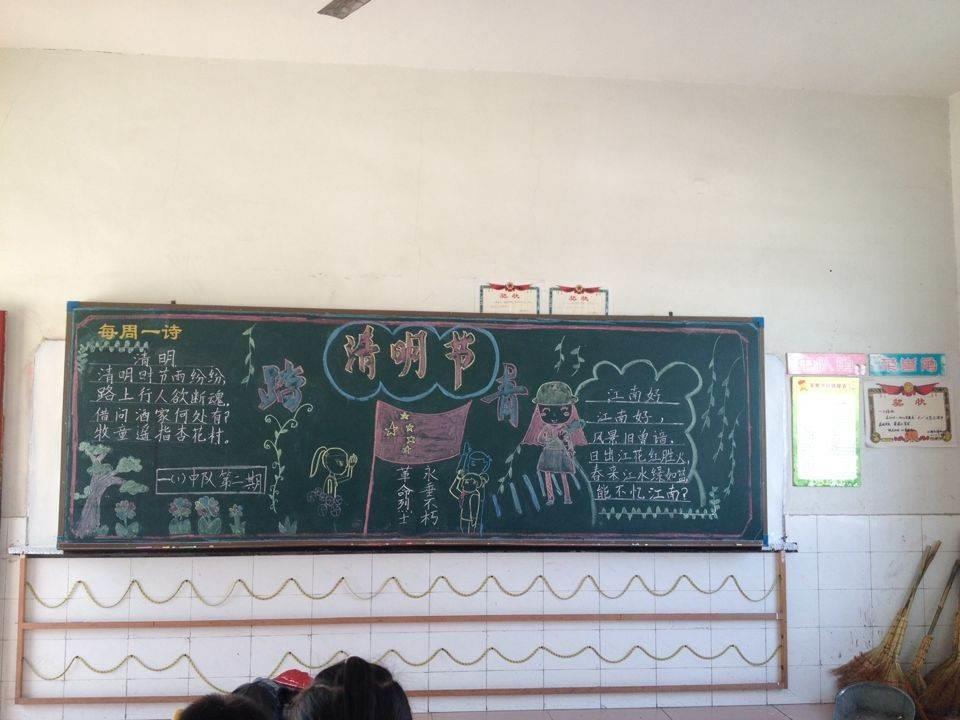 每周一诗
清明
清明时节雨纷纷,
路上行人欲断魂。
借问酒家何处有?
牧童遥指杏花村。
一(1)中队第二期
踏
清明节
青
革命烈士
永垂不朽
江南好
江南好,
风景旧曾谙。
日出江花红胜火,
春来江水绿如蓝
能不忆江南?
奖状
奖状
奖状